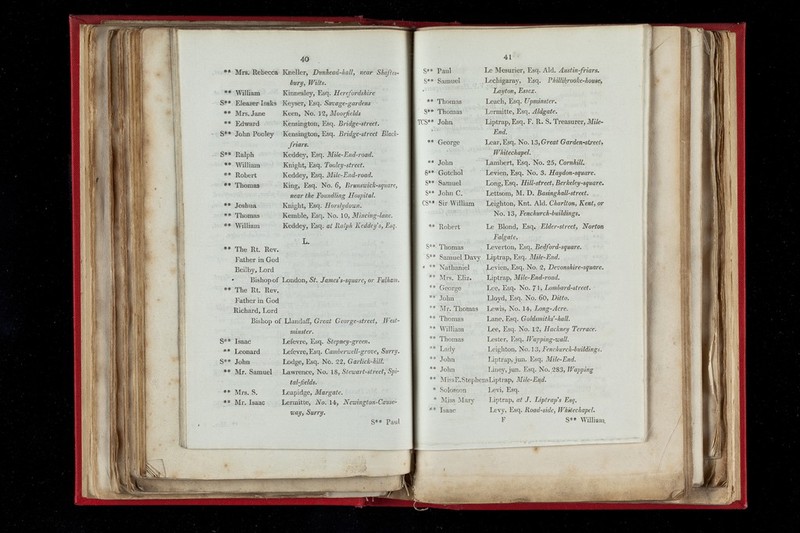 40
** Mrs. Rebecca Kneller, Donhead-hall, near Shaftes-
bury, Wilts.
** William Kinnesley, Esq. Herefordshire
S** Eleazer Isaks Keyser, Esq. Savage-gardens
** Mrs. Jane Keen, No. 12, Moorfields
** Edward Kensington, Esq. Bridge-street.
S** John Pooley Kensington, Esq. Bridge-street Black-
friars.
S** Ralph Keddey, Esq. Mile-End-road.
** William Knight, Esq. Tooley-street.
** Robert Keddey, Esq. Mile-End-road.
** Thomas King, Esq. No. 6, Brunswick-square,
near the Foundling Hospital.
** Joshua Knight, Esq. Horslydown.
** Thomas Kemble, Esq. No. 10, Mincing-lane.
** William Keddey, Esq. at Ralph Keddey's, Esq.
L.
** The Rt. Rev.
Father in God
Beilby, Lord
Bishop of London, St. James's-square, or Fulham.
** The Rt. Rev.
Father in God
Richard, Lord
Bishop of Llandaff, Great George-street, West-
minster.
S** Isaac Lefevre, Esq. Stepney-green.
** Leonard Lefevre, Esq. Camberwell-grove, Surry.
S** John Lodge, Esq. No. 22, Garlick-hill.
** Mr. Samuel Lawrence, No. 18, Stewart-street, Spi-
tal-fields.
** Mrs. S. Leapidge, Margate.
** Mr. Isaac Lermitte, No. 14, Newington-Cause-
way, Surry.
S** Paul
41
S** Paul Le Mesurier, Esq. Ald. Austin-friars.
S** Samuel Lechigaray, Esq. Phillibrooke-house,
Layton, Essex.
** Thomas Leach, Esq. Upminster.
S** Thomas Lermitte, Esq. Aldgate.
TCS** John Liptrap, Esq. F. R. S. Treasurer, Mile-
End.
** George Lear, Esq. No. 15, Great Garden-street,
Whitechapel.
** John Lambert, Esq. No. 25, Cornhill.
S** Gotchol Levien, Esq. No. 3, Haydon-square.
S** Samuel Long, Esq. Hill-street, Berkeley-square.
S** John C. Lettsom, M. D. Basinghall-street.
CS** Sir William Leighton, Knt. Ald. Charlton, Kent, or
No. 13, Fenchurch-buildings.
** Robert Le Blond, Esq. Elder-street, Norton
Falgate.
S** Thomas Leverton, Esq. Bedford-square.
S** Samuel Davy Liptrap, Esq. Mile-End.
** Nathaniel Levien, Esq. No. 2, Devonshire-square.
** Mrs. Eliz. Liptrap, Mile-End-road.
** George Lee, Esq. No. 71, Lombard-street.
** John Lloyd, Esq. No. 60, Ditto.
** Mr. Thomas Lewis, No. 14, Long-Acre.
** Thomas Lane, Esq. Goldsmiths'-hall.
** William Lee, Esq. No. 12, Hackney Terrace.
** Thomas Lester, Esq. Wapping-wall.
** Lady Leighton, No. 13, Fenchurch-buildings.
** John Liptrap, jun. Esq. Mile-End.
** John Liney, jun. Esq. No. 283, Wapping
** Miss E. Stephens Liptrap, Mile-End.
* Solomon Levi, Esq.
* Miss Mary Liptrap, at J. Liptrap's Esq.
** Isaac Levy, Esq. Road-side, Whitechapel.
F S** William